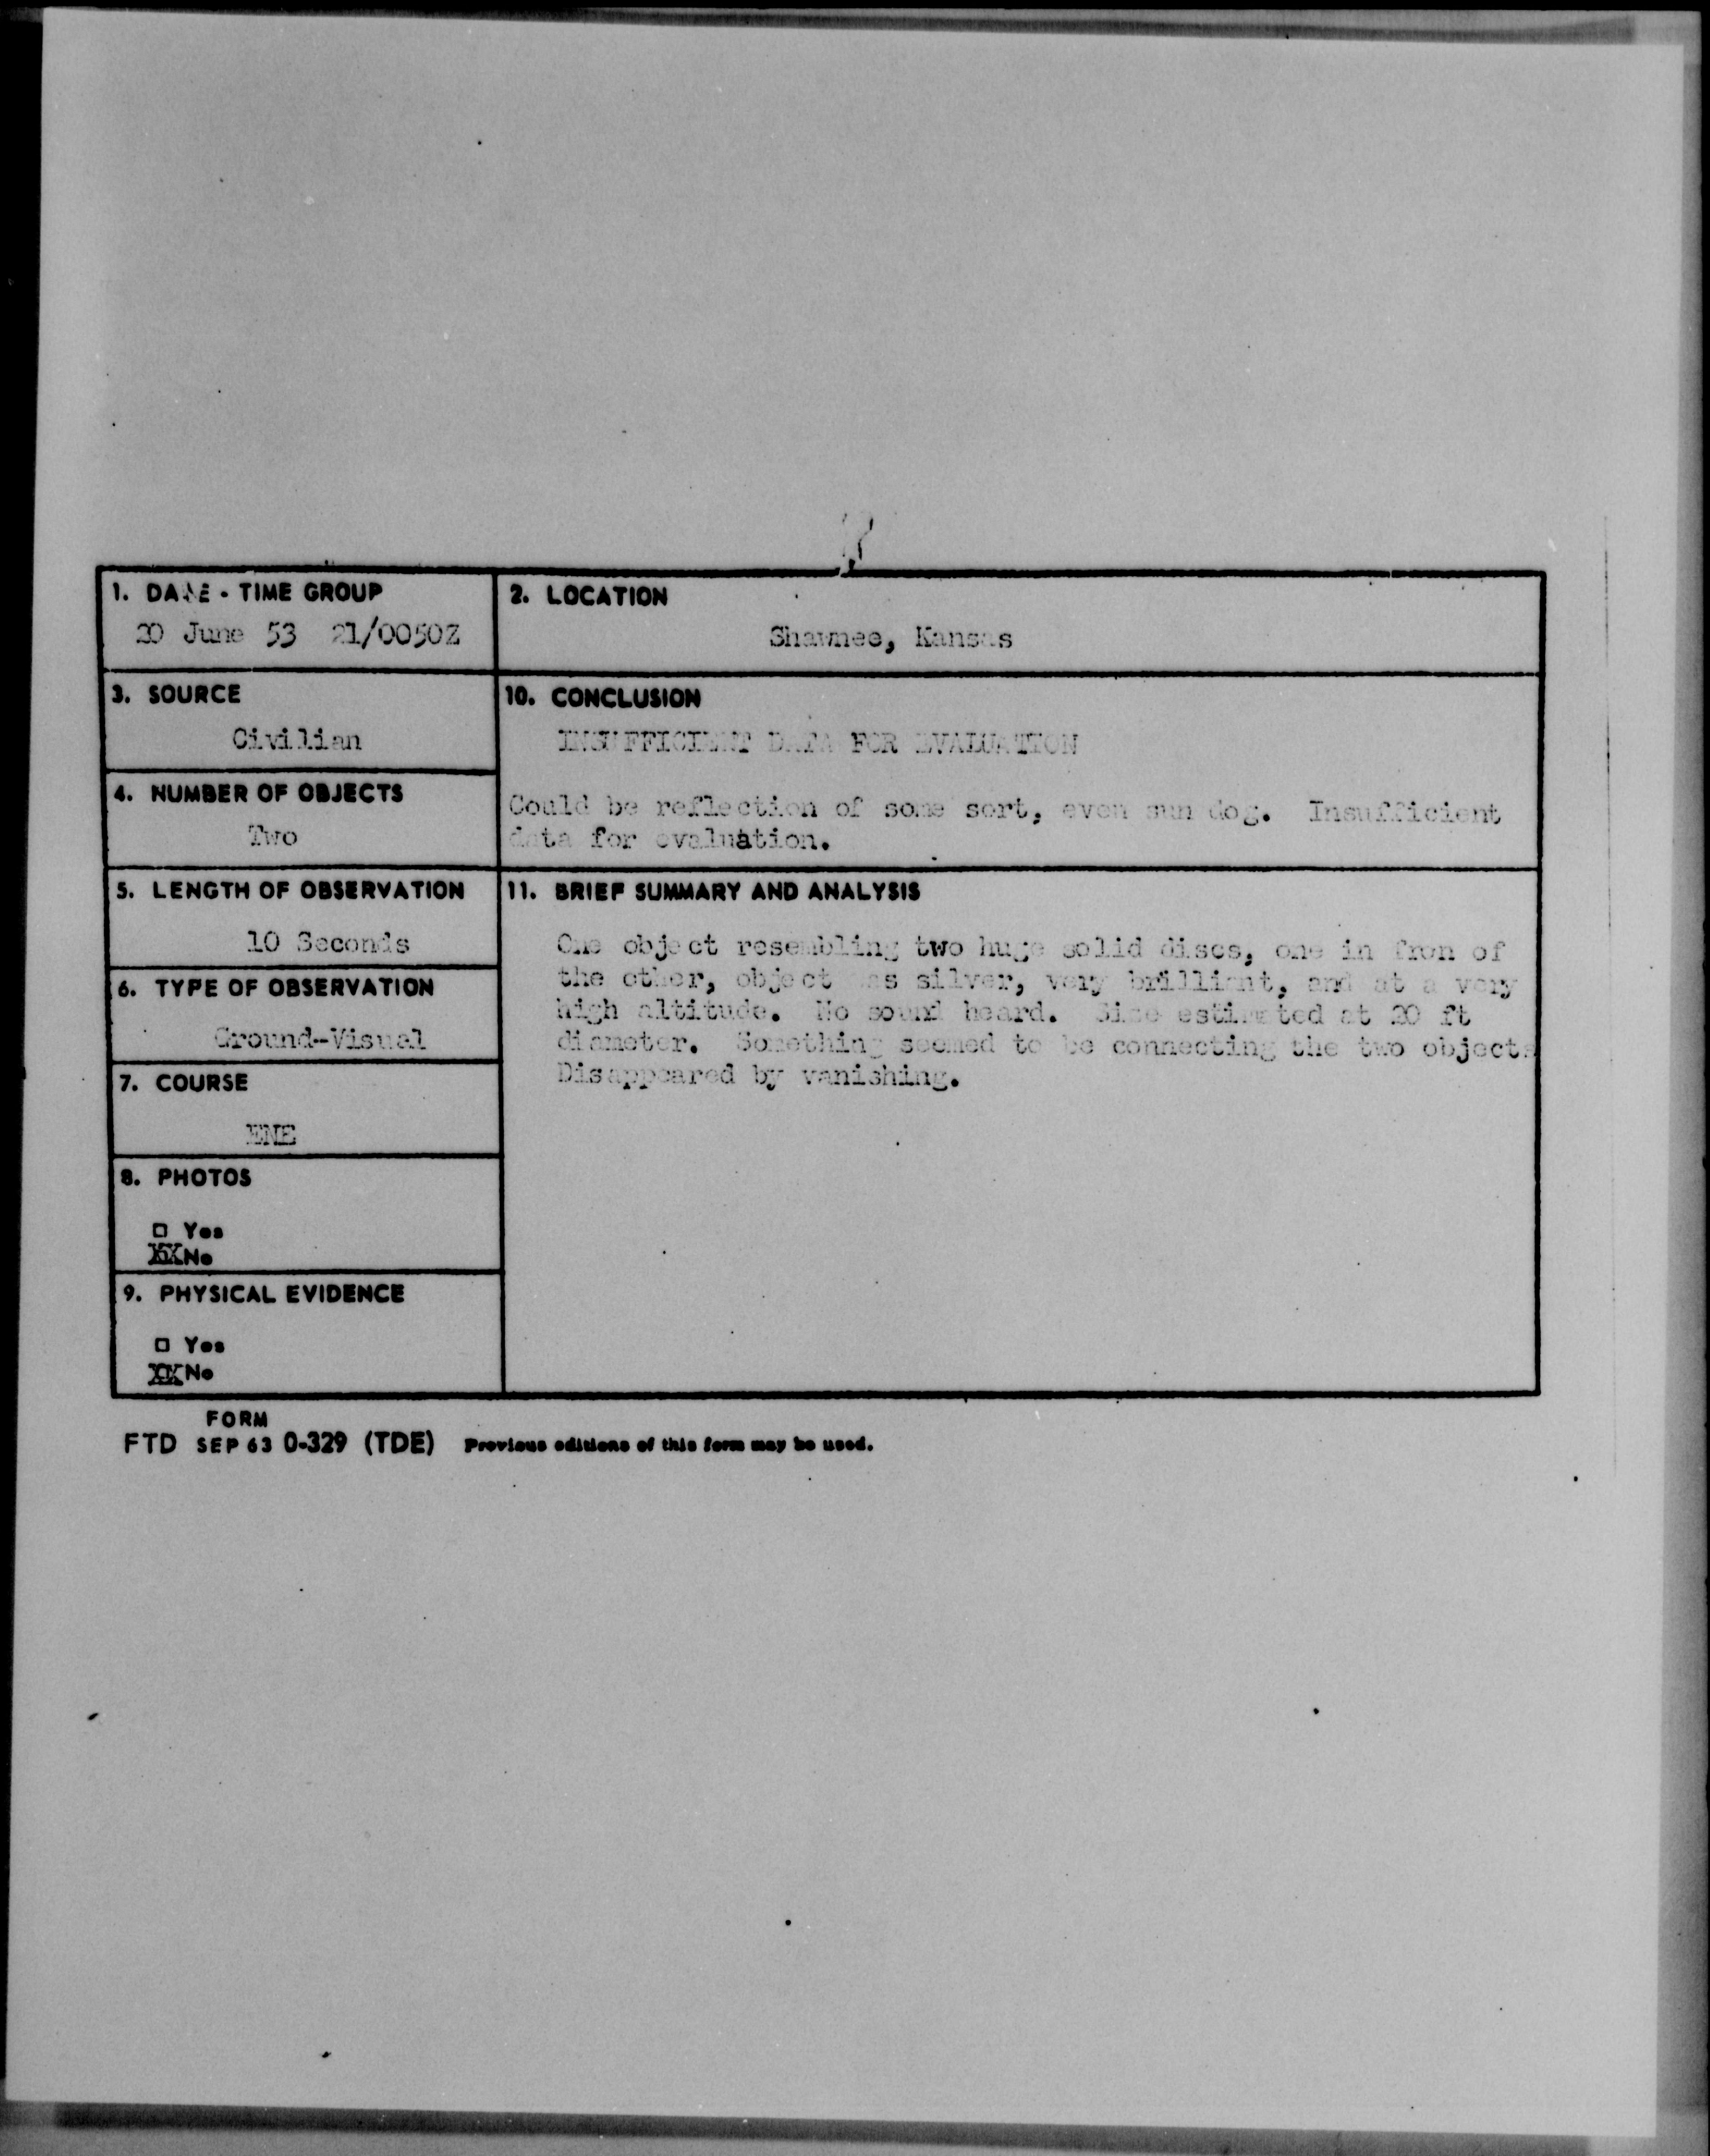 1. DATE - TIME GROUP
20 June 53 21/0050Z
2. LOCATION
Shawnee, Kansas
3. SOURCE
Civilian
10. CONCLUSION
INSUFFICIENT DATA FOR EVALUATION
Could be reflection of some sort, even sun dog. Insufficient
data for evaluation.
4. NUMBER OF OBJECTS
Two
5. LENGTH OF OBSERVATION
10 Seconds
11. BRIEF SUMMARY AND ANALYSIS
One object resembling two huge solid discs, one in fron of
the other, object was silver, very brilliant, and at a very
high altitude. No sound heard. Size estimated at 20 ft
diameter. Something seemed to be connecting the two objects
Disappeared by vanishing.
6. TYPE OF OBSERVATION
Ground-Visual
7. COURSE
ENE
8. PHOTOS
□ Yes
XX No
9. PHYSICAL EVIDENCE
□ Yes
XX No
FORM
FTD SEP 63 0-329 (TDE) Previous editions of this form may be used.